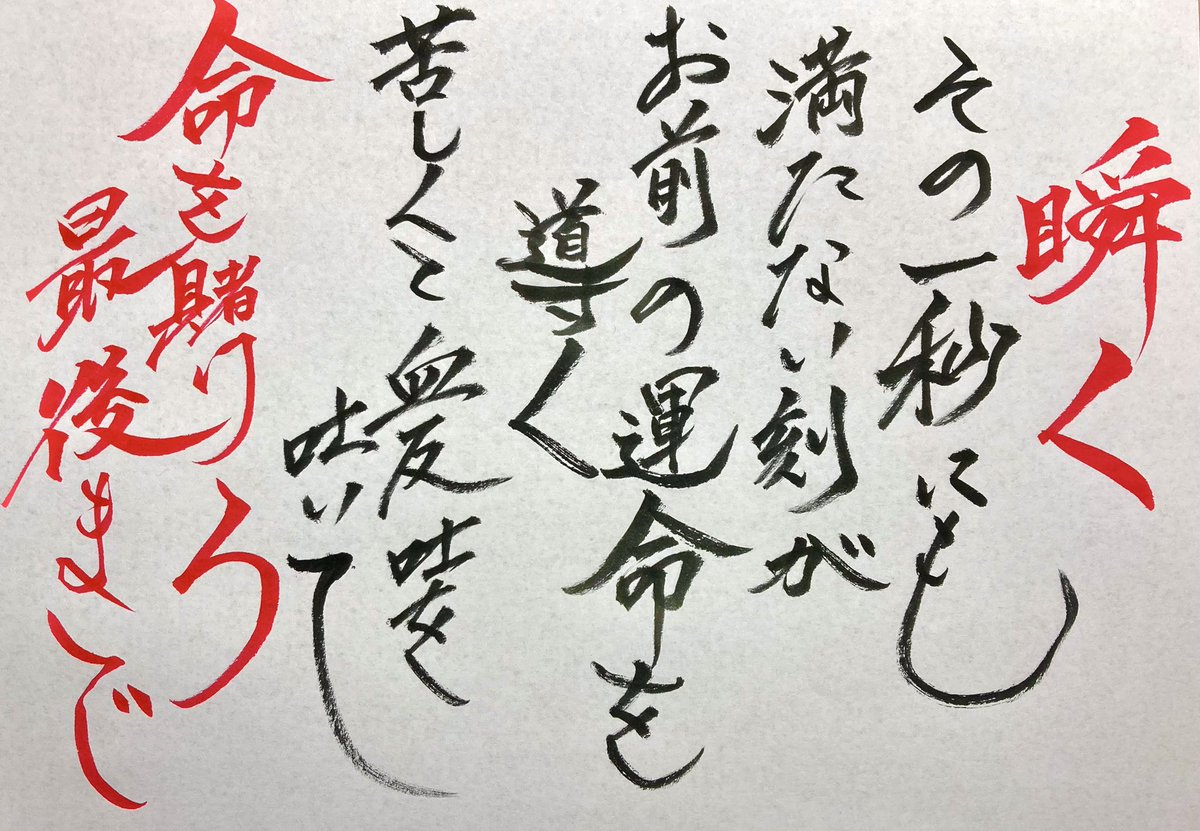 瞬く
その一秒にも
満たない刻が
お前の運命を
導く
苦しくて血反吐を
吐いて
命を賭けろ
最後まで